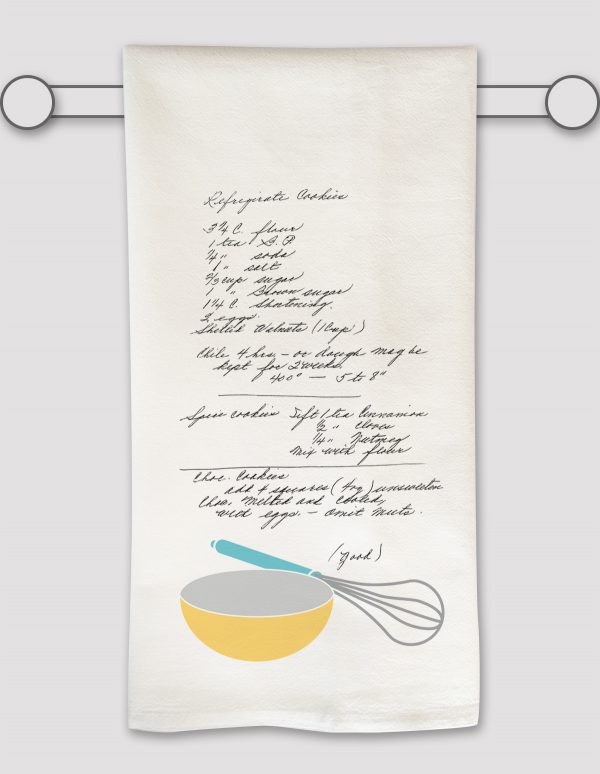 Refrigirate Cookies
3 1/4 C. flour
1 tea B. P
1/4 " soda
1 " salt
2/3 cup sugar
1 " Brown sugar
1 1/4 C. Shortening.
2 eggs.
Shelled Walnuts (1 Cup)
Chile 4 hrs. – or dough may be
kept for 2 weeks.
400° — 5 to 8"
Spice cookies Sift 1 tea Cinnamon
1/2 " Cloves
1/4 " Nutmeg
Mix with flour
Choc. Cookies
add 4 squares (4 oz) unsweeten
Choc. Melted and Cooled,
with eggs. – omit nuts.
(Good)